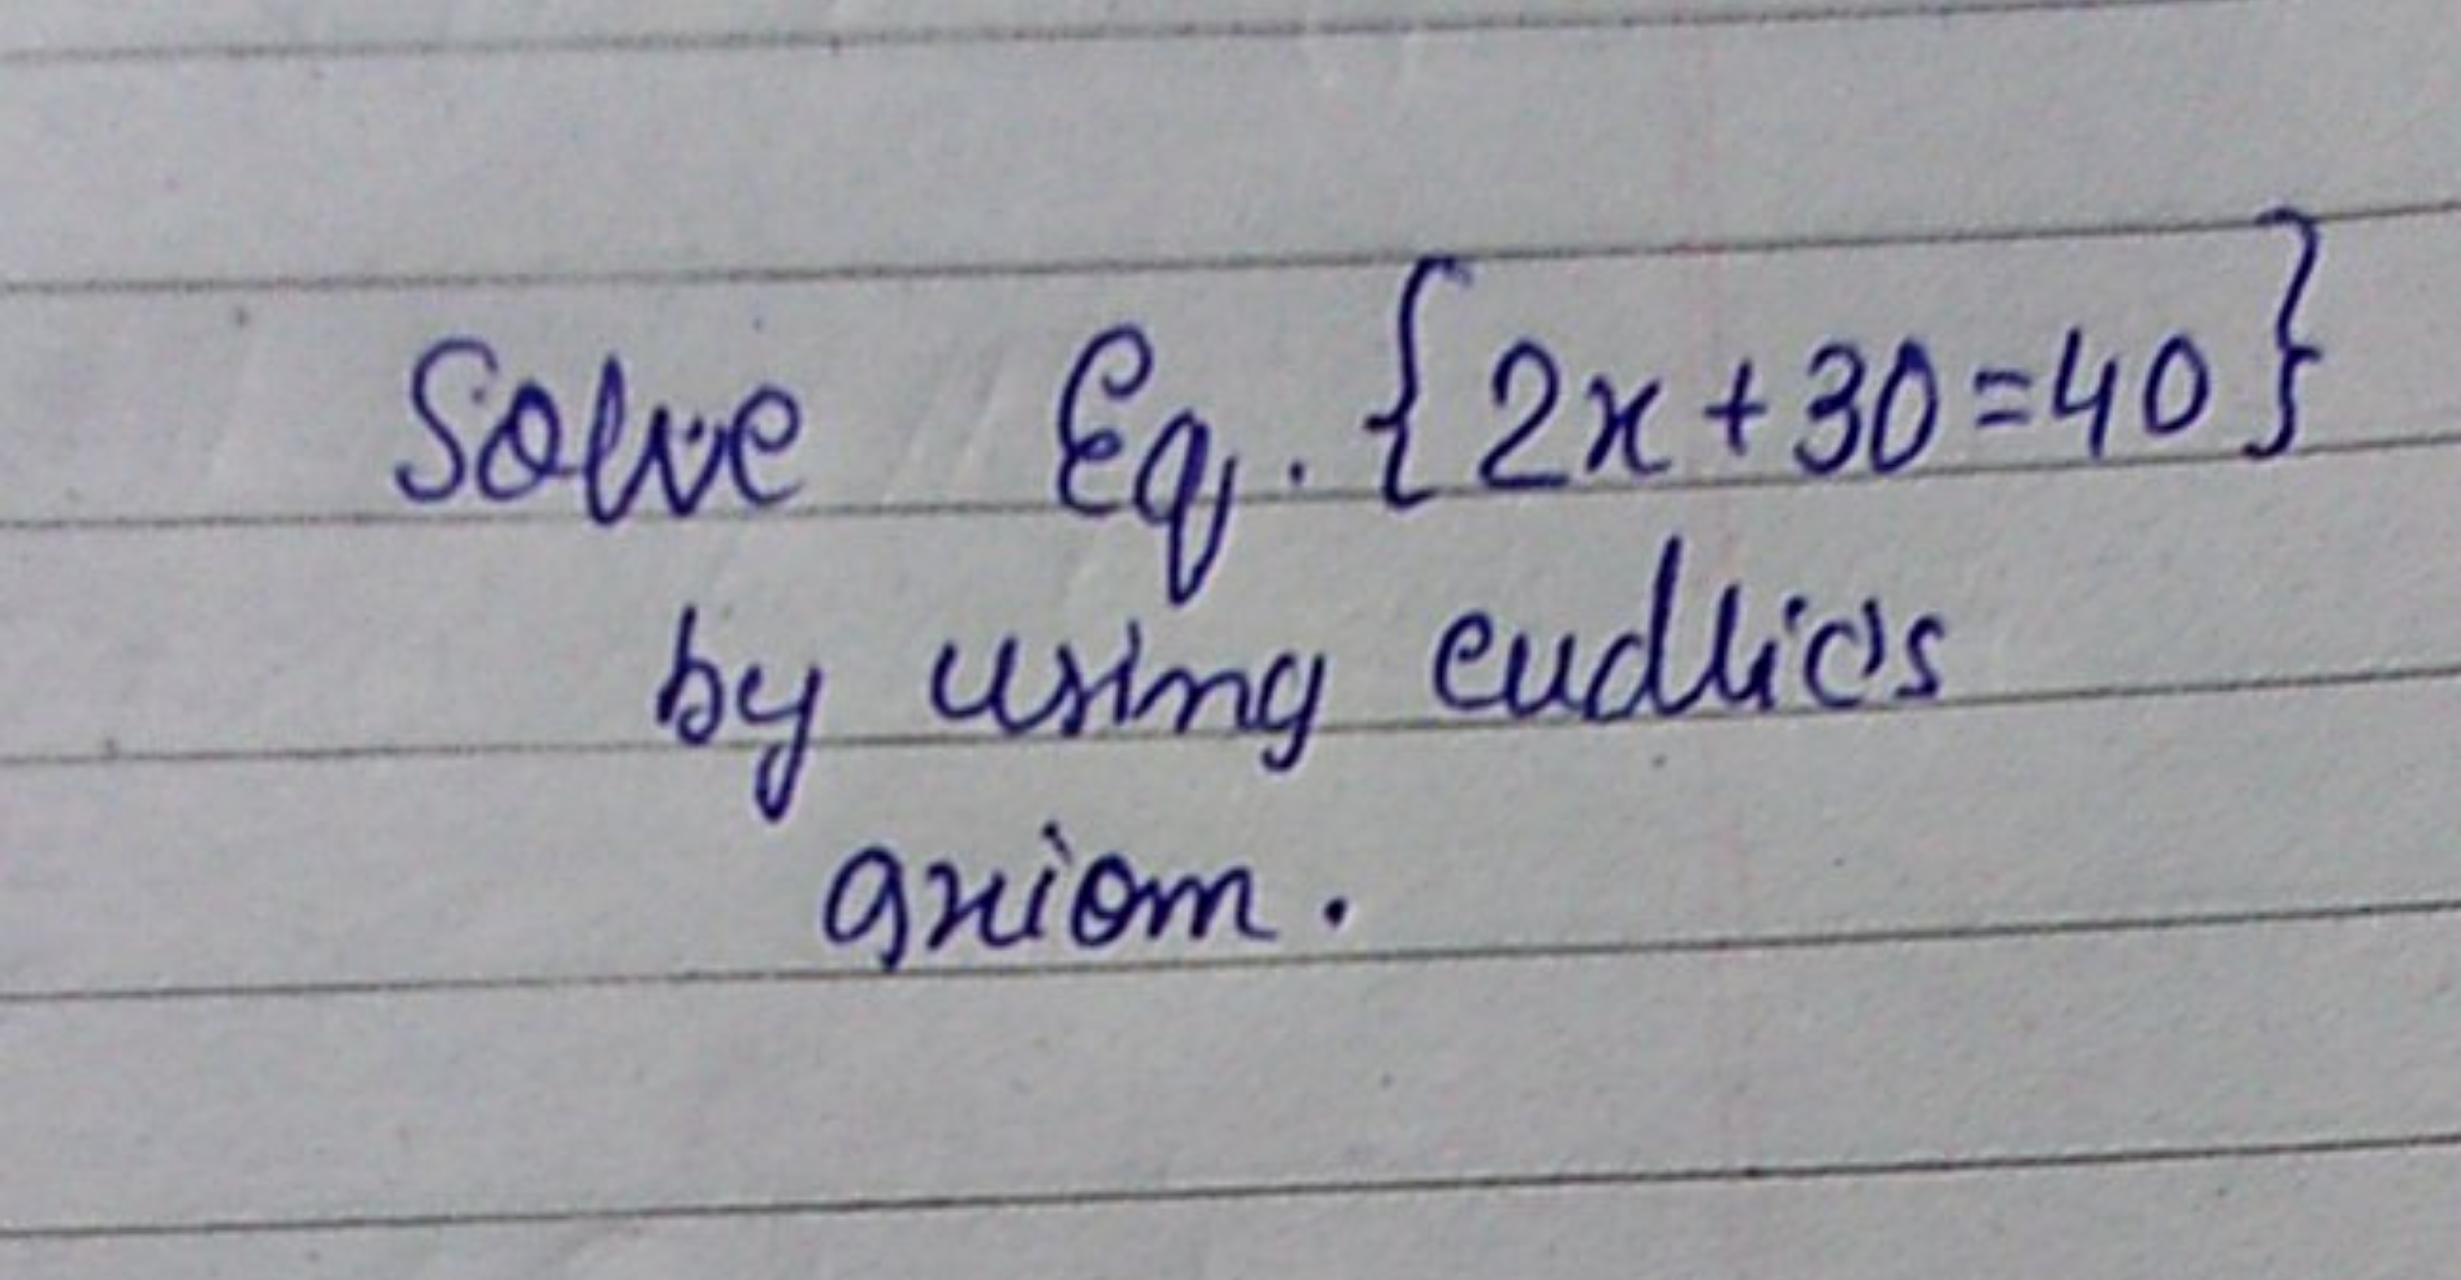 Solve Eq. {2x+30=40}
by using eudlic's
axiom.